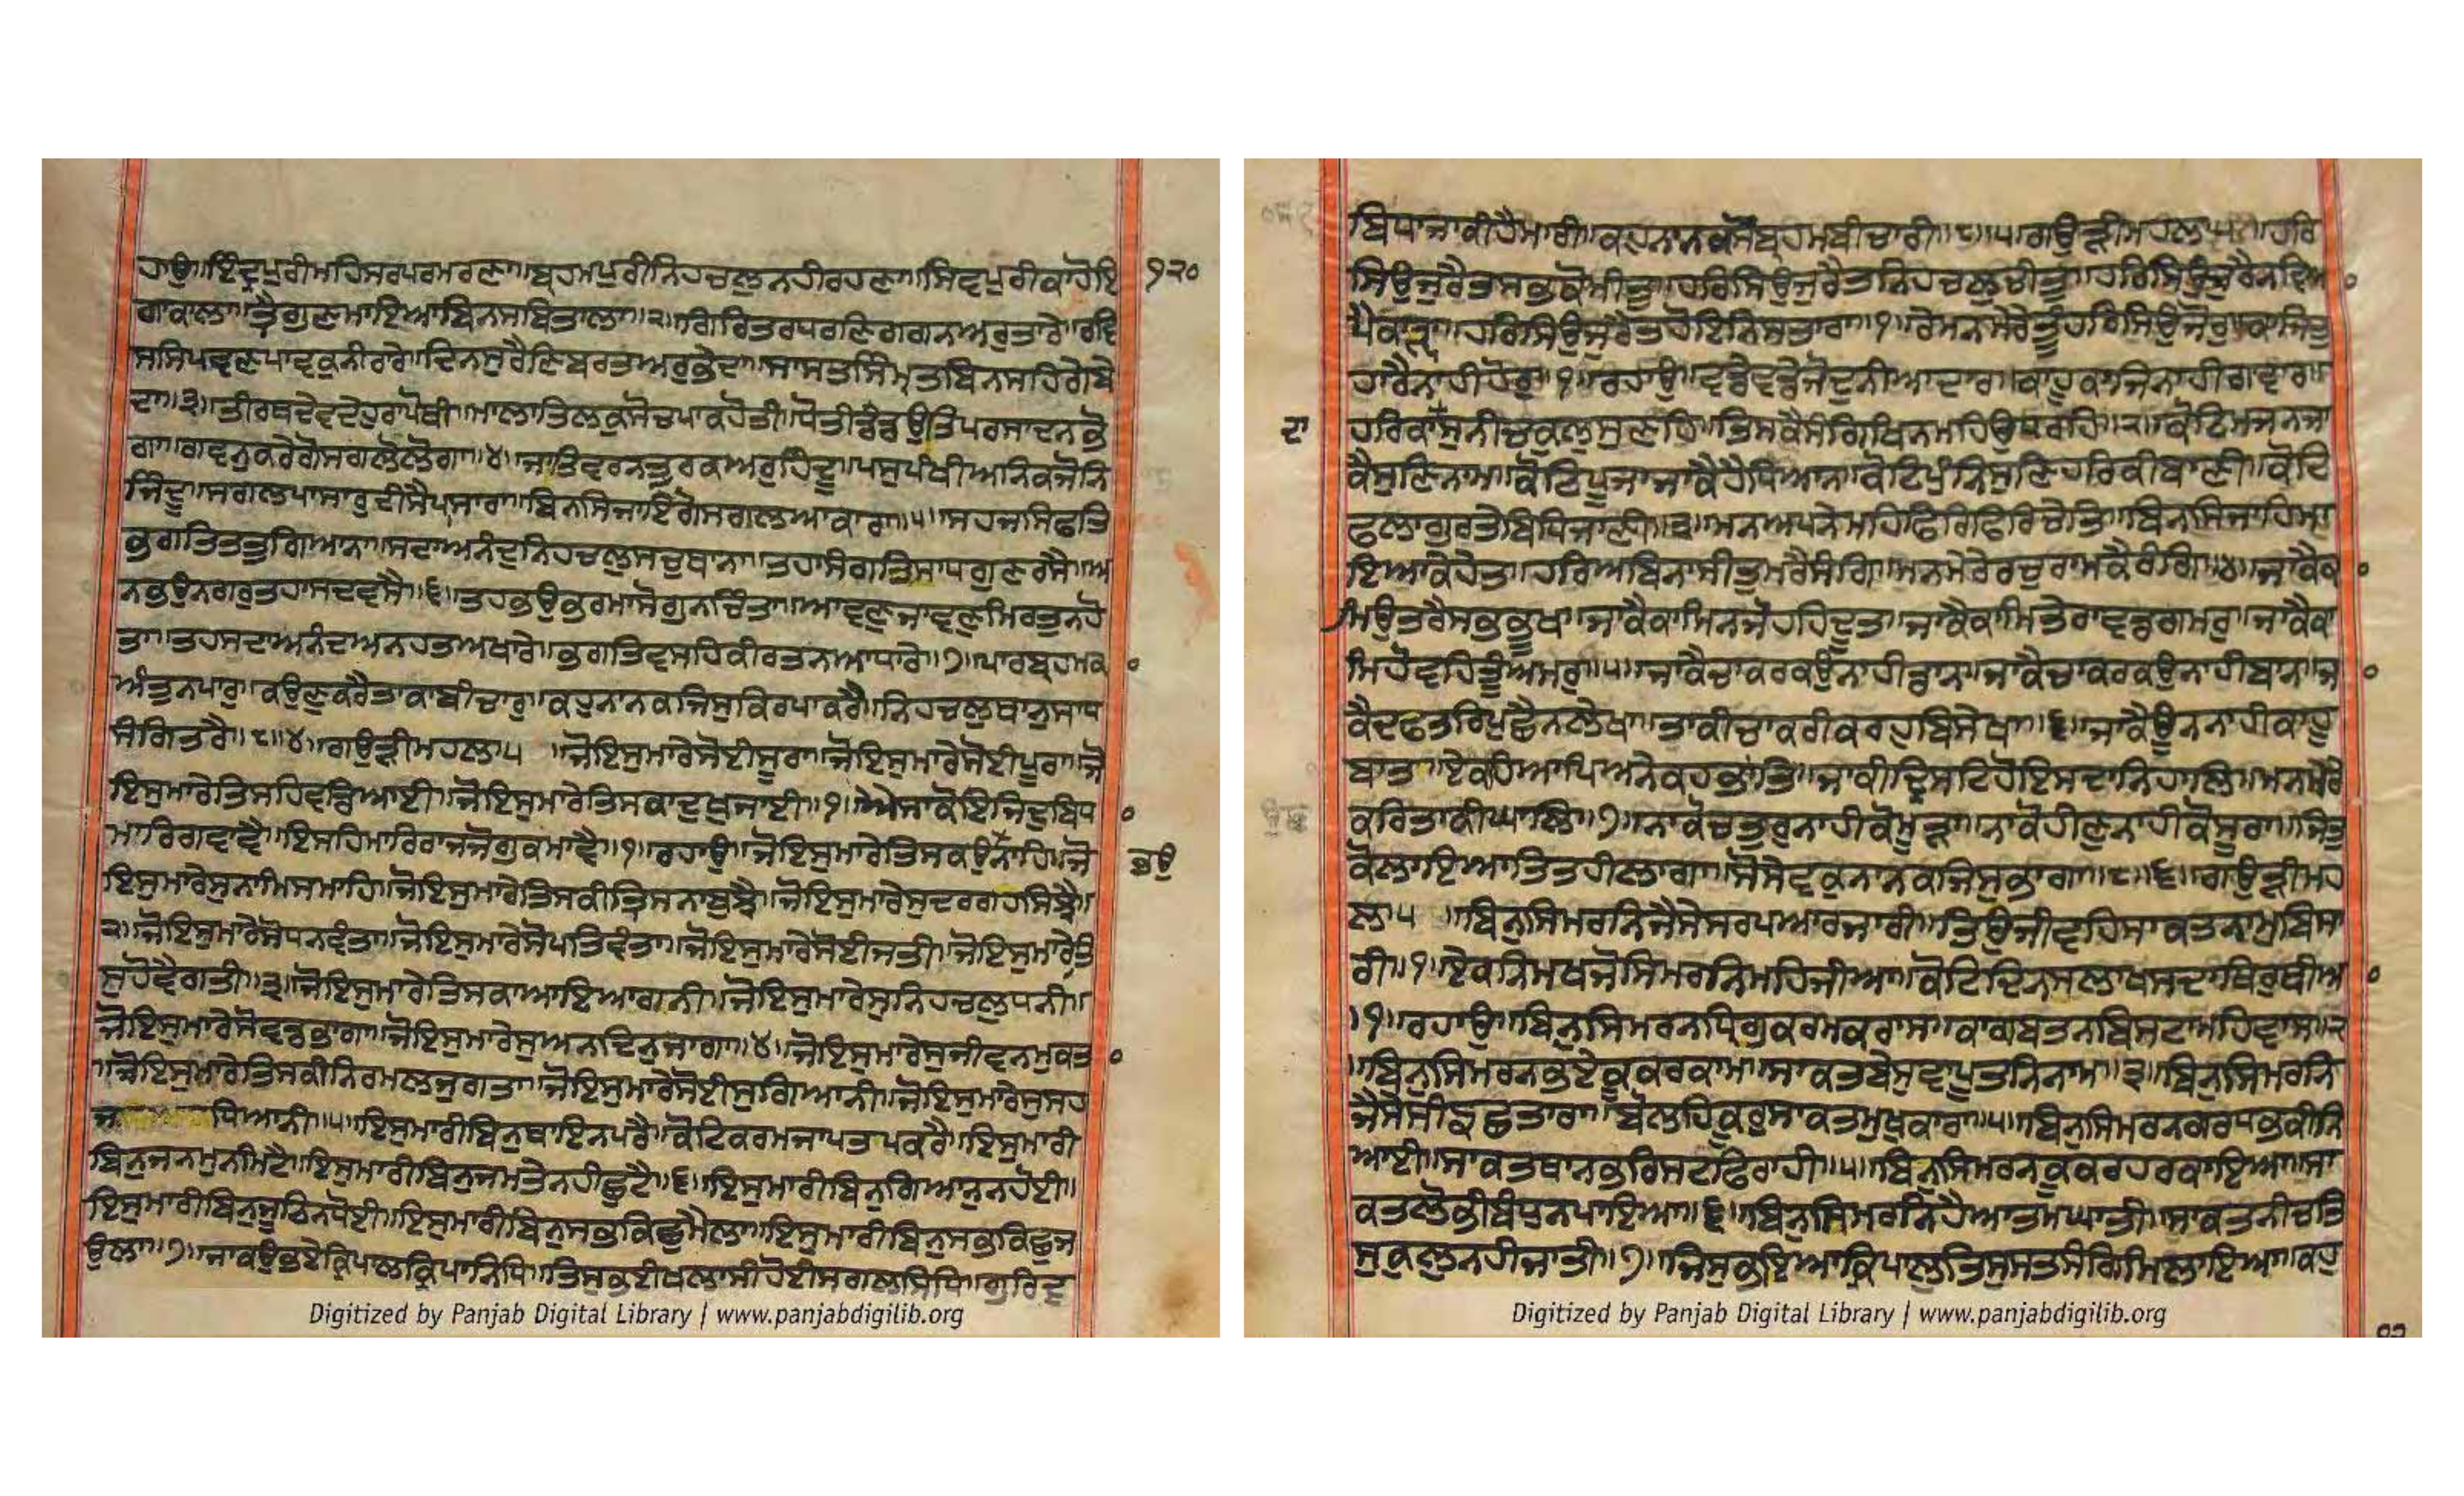 ਹਾਉ॥ਇੰਦ੍ਰਪੁਰੀਮਹਿਸਰਪਰਮਰਣਾ॥ਬ੍ਰਹਮਪੁਰੀਨਿਹਚਲੁਨਹੀਰਹਣਾ॥ਸਿਵਪੁਰੀਕਾਹੋਇ ੧੨੦
ਗਾਕਾਲਾ॥ਤ੍ਰੈਗੁਣਮਾਇਆਬਿਨਸਬਿਤਾਲਾ॥੨॥ਗਿਰਿਤਰਧਰਣਿਗਗਨਅਰੁਤਾਰੇ॥ਰਵਿ
ਸਸਿਪਵਣੁਪਾਵਕੁਨੀਰਾਰੇ॥ਦਿਨਸੁਰੈਣਿਬਰਤਅਰੁਭੇਦਾ॥ਸਾਸਤਸਿੰਮ੍ਰਿਤਬਿਨਸਹਿਗੇਬੇ
ਦਾ॥੩॥ਤੀਰਥਦੇਵਦੇਹੁਰਾਪੋਥੀ॥ਮਾਲਾਤਿਲਕੁਸੋਚਪਾਕਹੋਤੀ॥ਧੋਤੀਡੰਡਉਤਿਪਰਸਾਦਨਭੋ
ਗਾ॥ਗਵਨੁਕਰੈਗੋਸਗਲੋਲੋਗਾ॥੪॥ਜਾਤਿਵਰਨਤੁਰਕਅਰੁਹਿੰਦੂ॥ਪਸੁਪੰਖੀਅਨਿਕਜੋਨਿ
ਜਿੰਦੂ॥ਸਗਲਪਾਸਾਰੁਦੀਸੈਪਾਸਾਰਾ॥ਬਿਨਸਿਜਾਇਗੋਸਗਲਆਕਾਰਾ॥੫॥ਸਹਜਸਿਫਤਿ
ਭਗਤਿਤਤੁਗਿਆਨਾ॥ਸਦਾਅਨੰਦੁਨਿਹਚਲੁਸਚੁਥਾਨਾ॥ਤਹਾਸੰਗਤਿਸਾਧਗੁਣਰਸੈ॥ਅ
ਨਭਉਨਗਰੁਤਹਾਸਦਵਸੈ॥੬॥ਤਹਭਉਭਰਮਾਸੋਗੁਨਚਿੰਤਾ॥ਆਵਣੁਜਾਵਣੁਮਿਰਤੁਨਹੋ
ਤਾ॥ਤਹਸਦਾਅਨੰਦਅਨਹਤਅਖਾਰੇ॥ਭਗਤਿਵਸਹਿਕੀਰਤਨਆਧਾਰੇ॥੭॥ਪਾਰਬ੍ਰਹਮਕਾ
ਅੰਤੁਨਪਾਰੁ॥ਕਉਣੁਕਰੈਤਾਕਾਬੀਚਾਰੁ॥ਕਹੁਨਾਨਕਜਿਸੁਕਿਰਪਾਕਰੈ॥ਨਿਹਚਲੁਥਾਨੁਸਾਧ
ਸੰਗਿਤਰੈ॥੮॥੪॥ਗਉੜੀਮਹਲਾ੫ ॥ਜੋਇਸੁਮਾਰੇਸੋਈਸੂਰਾ॥ਜੋਇਸੁਮਾਰੇਸੋਈਪੂਰਾ॥ਜੋ
ਇਸੁਮਾਰੇਤਿਸਹਿਵਡਿਆਈ॥ਜੋਇਸੁਮਾਰੇਤਿਸਕਾਦੁਖੁਜਾਈ॥੧॥ਐਸਾਕੋਇਜਿਦੁਬਿਧਾ
ਮਾਰਿਗਵਾਵੈ॥ਇਸਹਿਮਾਰਿਰਾਜਜੋਗੁਕਮਾਵੈ॥੧॥ਰਹਾਉ॥ਜੋਇਸੁਮਾਰੇਤਿਸਕਉਨਾਹਿ॥ਜੋ ਭਉ
ਇਸੁਮਾਰੇਸੁਨਾਮਿਸਮਾਹਿ॥ਜੋਇਸੁਮਾਰੇਤਿਸਕੀਤ੍ਰਿਸਨਾਬੁਝੈ॥ਜੋਇਸੁਮਾਰੇਸੁਦਰਗਹਸਿਝੈ॥
੨॥ਜੋਇਸੁਮਾਰੇਸੋਧਨਵੰਤਾ॥ਜੋਇਸੁਮਾਰੇਸੋਪਤਿਵੰਤਾ॥ਜੋਇਸੁਮਾਰੇਸੋਈਜਤੀ॥ਜੋਇਸੁਮਾਰੇਤਿ
ਸੁਹੋਵੈਗਤੀ॥੩॥ਜੋਇਸੁਮਾਰੇਤਿਸਕਾਆਇਆਗਨੀ॥ਜੋਇਸੁਮਾਰੇਸੁਨਿਹਚਲੁਧਨੀ॥
ਜੋਇਸੁਮਾਰੇਸੋਵਡਭਾਗਾ॥ਜੋਇਸੁਮਾਰੇਸੁਅਨਦਿਨੁਜਾਗਾ॥੪॥ਜੋਇਸੁਮਾਰੇਸੁਜੀਵਨਮੁਕਤਾ
॥ਜੋਇਸੁਮਾਰੇਤਿਸਕੀਨਿਰਮਲਜੁਗਤਾ॥ਜੋਇਸੁਮਾਰੇਸੋਈਸੁਗਿਆਨੀ॥ਜੋਇਸੁਮਾਰੇਸੁਸਹ
ਜ ਧਿਆਨੀ॥੫॥ਇਸੁਮਾਰੀਬਿਨੁਥਾਇਨਪਰੈ॥ਕੋਟਿਕਰਮਜਾਪਤਪਕਰੈ॥ਇਸੁਮਾਰੀ
ਬਿਨੁਜਨਮੁਨੀਮਟੈ॥ਇਸੁਮਾਰੀਬਿਨੁਜਮਤੇਨਹੀਛੁਟੈ॥੬॥ਇਸੁਮਾਰੀਬਿਨੁਗਿਆਨੁਨਹੋਈ॥
ਇਸੁਮਾਰੀਬਿਨੁਜੂਠਿਨਧੋਈ॥ਇਸੁਮਾਰੀਬਿਨੁਸਭੁਕਿਛੁਮੈਲਾ॥ਇਸੁਮਾਰੀਬਿਨੁਸਭੁਕਿਛੁਜ
ਉਲਾ॥੭॥ਜਾਕਉਭਏਕ੍ਰਿਪਾਲਕ੍ਰਿਪਾਨਿਧਿ॥ਤਿਸੁਭਈਖਲਾਸੀਹੋਈਸਗਲਸਿਧਿ॥ਗੁਰਿਦੁ
Digitized by Panjab Digital Library | www.panjabdigilib.org
ਬਿਧਾਜਾਕੀਹੈਮਾਰੀ॥ਕਹੁਨਾਨਕਸੋਬ੍ਰਹਮਬੀਚਾਰੀ॥੮॥੫॥ਗਉੜੀਮਹਲਾ੫॥ਹਰਿ
ਸਿਉਜੁਰੈਤਸਭੁਕੋਮੀਤੁ॥ਹਰਿਸਿਉਜੁਰੈਤਨਿਹਚਲੁਚੀਤੁ॥ਹਰਿਸਿਉਜੁਰੈਨਵਿਆ
ਪੈਕਾੜ੍ਹਾ॥ਹਰਿਸਿਉਜੁਰੈਤਹੋਇਨਿਸਤਾਰਾ॥੧॥ਰੇਮਨਮੇਰੇਤੂੰਹਰਿਸਿਉਜੋਰੁ॥ਕਾਜਿਤੁ
ਹਾਰੈਨਾਹੀਹੋਰੁ॥੧॥ਰਹਾਉ॥ਵਡੇਵਡੇਜੋਦੁਨੀਆਦਾਰ॥ਕਾਹੂਕਾਜਿਨਾਹੀਗਾਵਾਰ॥
ਦਾ ਹਰਿਕਾਸੁਨੀਚਕੁਲੁਸੁਣਹਿ॥ਤਿਸਕੈਸੰਗਿਖਿਨਮਹਿਉਧਰਹਿ॥੨॥ਕੋਟਿਮਜਨਜਾ
ਕੈਸੁਣਿਨਾਮ॥ਕੋਟਿਪੂਜਾਜਾਕੈਹੈਧਿਆਨ॥ਕੋਟਿਪੁੰਨਿਸੁਣਿਹਰਿਕੀਬਾਣੀ॥ਕੋਟਿ
ਫਲਾਗੁਰਤੇਬਿਧਿਜਾਣੀ॥੩॥ਮਨਅਪਨੇਮਹਿਫਿਰਿਫਿਰਿਚੇਤਿ॥ਬਿਨਸਿਜਾਹਿਮਾ
ਇਆਕੇਹੇਤ॥ਹਰਿਅਬਿਨਾਸੀਤੁਮਰੈਸੰਗਿ॥ਮਨਮੇਰੇਰਚੁਰਾਮਕੈਰੰਗਿ॥੪॥ਜਾਕੈਕਾ
ਮਿਉਤਰੈਸਭਭੂਖ॥ਜਾਕੈਕਾਮਿਨਜੋਹਹਿਦੂਤ॥ਜਾਕੈਕਾਮਿਤੇਰਾਵਡਗਮਰੁ॥ਜਾਕੈਕਾ
ਮਿਹੋਵਹਿਤੂੰਅਮਰੁ॥੫॥ਜਾਕੈਚਾਕਰਕਉਨਾਹੀਡਾਨ॥ਜਾਕੈਚਾਕਰਕਉਨਾਹੀਬਾਨ॥ਜਾ
ਕੈਦਫਤਰਿਪੁਛੈਨਲੇਖਾ॥ਤਾਕੀਚਾਕਰੀਕਰਹੁਬਿਸੇਖਾ॥੬॥ਜਾਕੈਊਨਨਾਹੀਕਾਹੂ
ਬਾਤ॥ਏਕਹਿਆਪਿਅਨੇਕਹਭਾਤਿ॥ਜਾਕੀਦ੍ਰਿਸਟਿਹੋਇਸਦਾਨਿਹਾਲ॥ਮਨਮੇਰੇ
ਕਰਿਤਾਕੀਘਾਲ॥੭॥ਨਾਕੋਚਤੁਰੁਨਾਹੀਕੋਮੂੜਾ॥ਨਾਕੋਹੀਣੁਨਾਹੀਕੋਸੂਰਾ॥ਜਿਤੁ
ਕੋਲਾਇਆਤਿਤਹੀਲਾਗਾ॥ਸੋਸੇਵਕੁਨਾਨਕਜਿਸੁਭਾਗਾ॥੮॥੬॥ਗਉੜੀਮਹ
ਲਾ੫ ॥ਬਿਨੁਸਿਮਰਨਜੈਸੇਸਰਪਆਰਜਾਰੀ॥ਤਿਉਜੀਵਹਿਸਾਕਤਨਾਮੁਬਿਸਾ
ਰੀ॥੧॥ਏਕਨਿਮਖਜੋਸਿਮਰਨਮਹਿਜੀਆ॥ਕੋਟਿਦਿਨਸਲਾਖਸਦਾਥਿਰੁਥੀਆ
॥੧॥ਰਹਾਉ॥ਬਿਨੁਸਿਮਰਨਧ੍ਰਿਗੁਕਰਮਕਰਾਸ॥ਕਾਗਬਤਨਬਿਸਟਾਮਹਿਵਾਸ॥੨
॥ਬਿਨੁਸਿਮਰਨਭਏਕੂਕਰਕਾਮ॥ਸਾਕਤਬੇਸੁਵਾਪੂਤਨਿਨਾਮ॥੩॥ਬਿਨੁਸਿਮਰਨ
ਜੈਸੇਸੀਙਛਤਾਰਾ॥ਬੋਲਹਿਕੂਰੁਸਾਕਤਮੁਖੁਕਾਰਾ॥੫॥ਬਿਨੁਸਿਮਰਨਗਰਧਭਕੀਨਿ
ਆਈ॥ਸਾਕਤਥਾਨਭਰਿਸਟਫਿਰਾਹੀ॥੫॥ਬਿਨੁਸਿਮਰਨਕੂਕਰਹਰਕਾਇਆ॥ਸਾ
ਕਤਲੋਭੀਬੰਧੁਨਪਾਇਆ॥੬॥ਬਿਨੁਸਿਮਰਨਹੈਆਤਮਘਾਤੀ॥ਸਾਕਤਨੀਚਤਿ
ਸੁਕੁਲੁਨਹੀਜਾਤੀ॥੭॥ਜਿਸੁਭਇਆਕ੍ਰਿਪਾਲੁਤਿਸੁਸਤਸੰਗਿਮਿਲਾਇਆ॥ਕਹੁ
Digitized by Panjab Digital Library | www.panjabdigilib.org